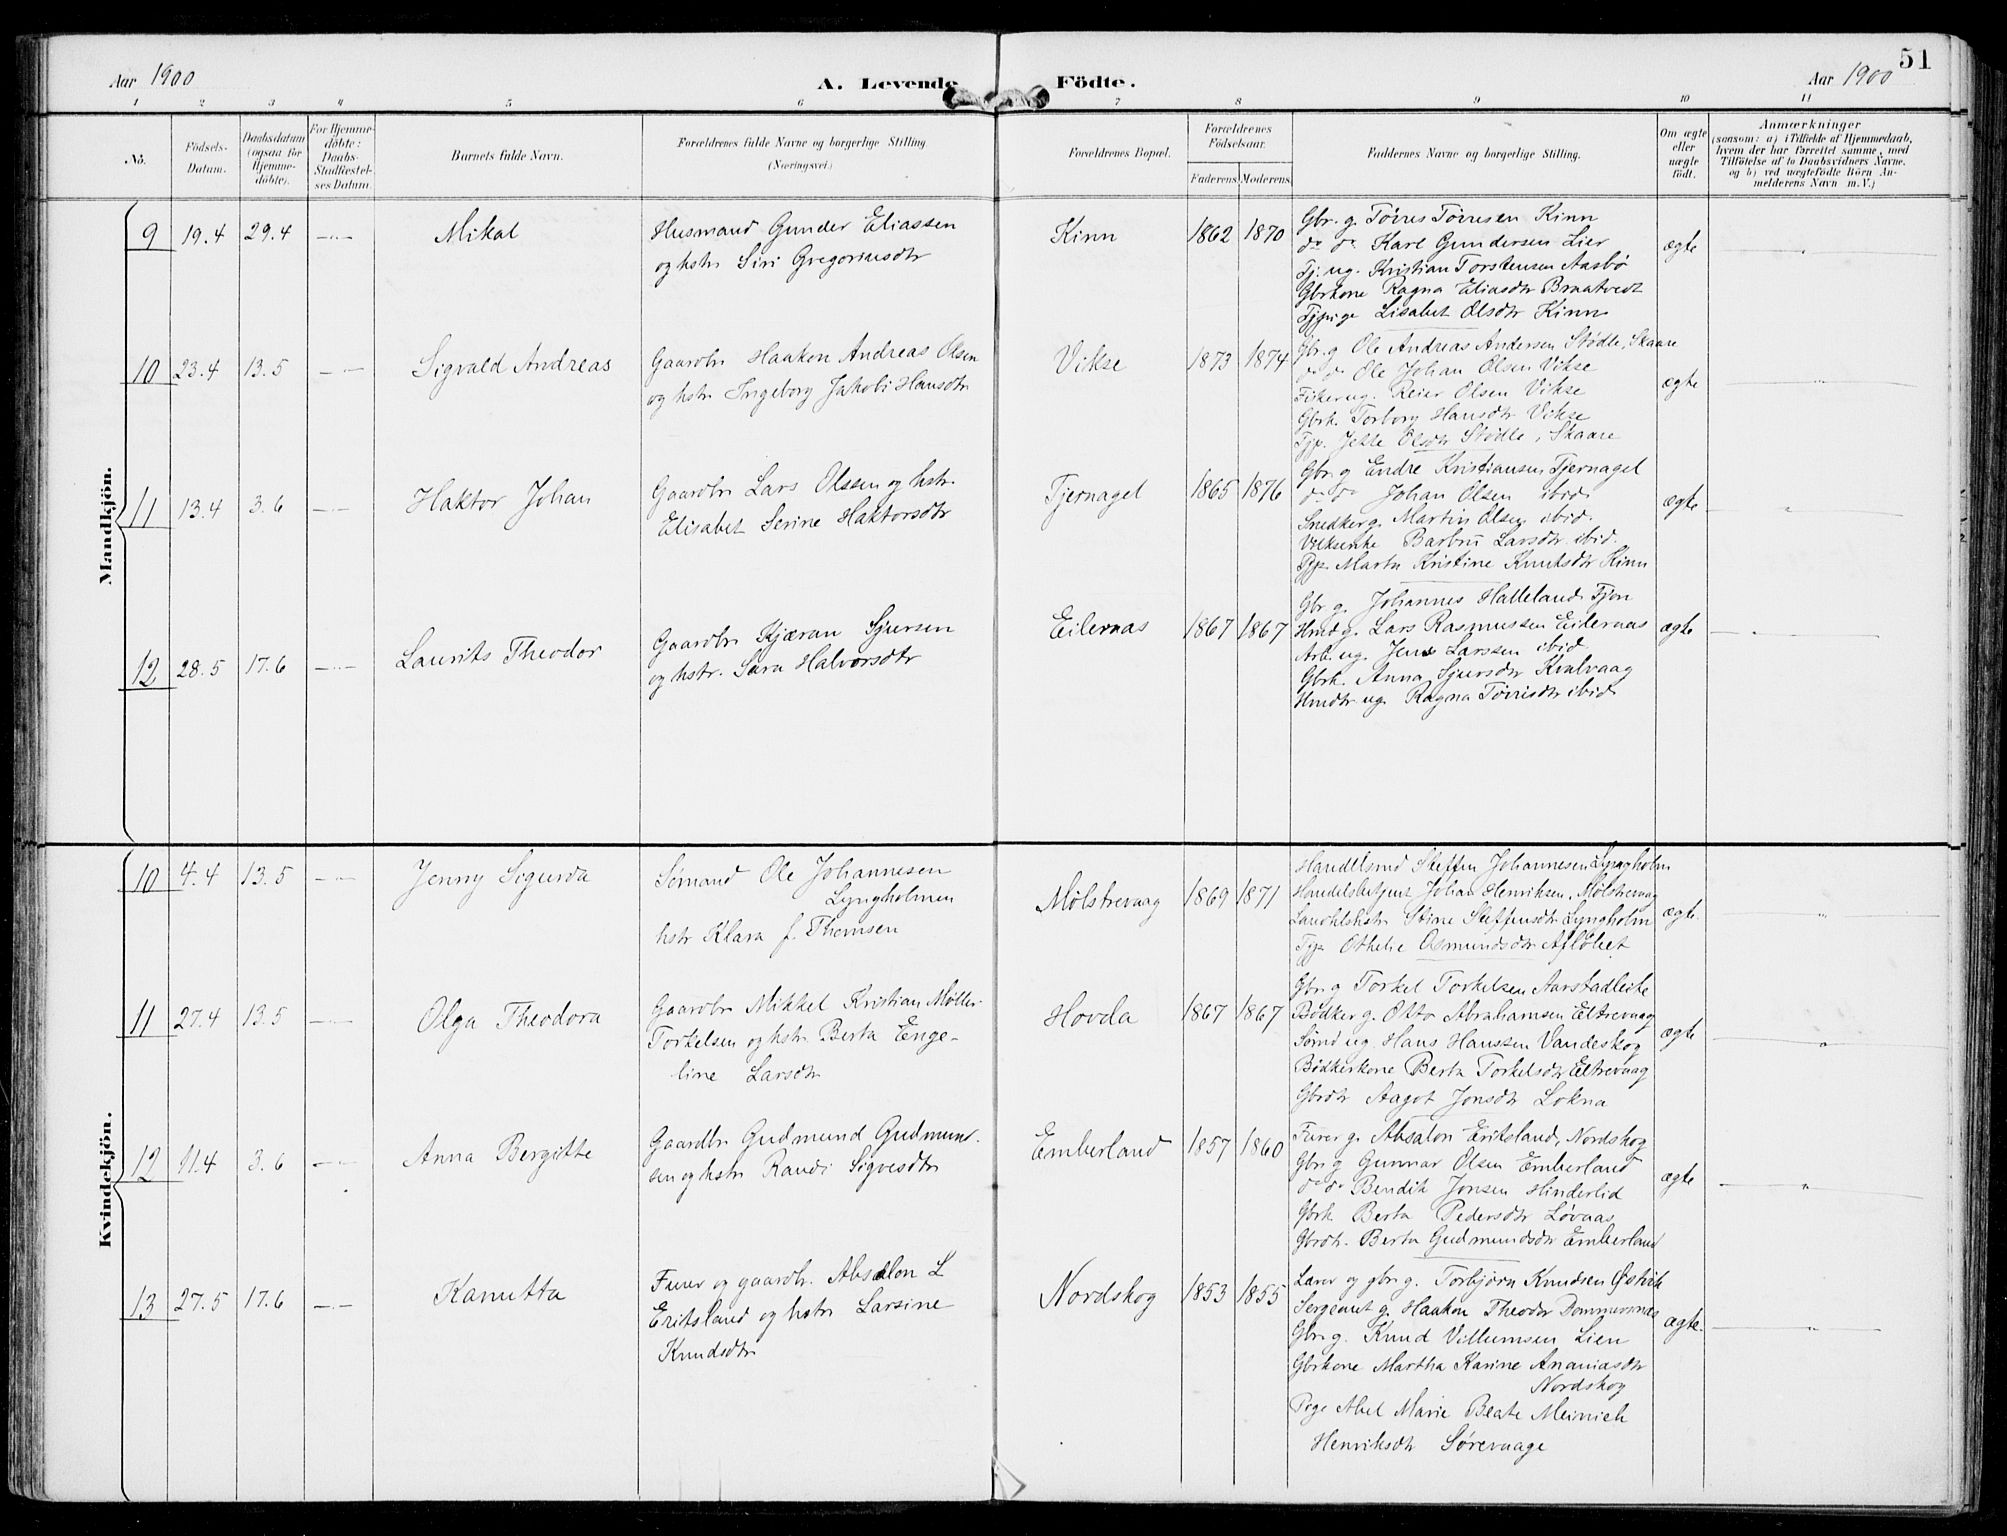 51
Aar 1900
A. Levende Födte.
Aar 1900
1 2 3 4 5 6 7 8 9 10 11
No.
Födsels-
Datum.
Daabsdatum
(ogsaa for
Hjemme-
döbte).
For Hjemme-
döbte:
Daabs-
Stadfæstel-
ses Datum.
Barnets fulde Navn.
Forældrenes fulde Navne og borgerlige Stilling
(Næringsvei.)
Forældrenes Bopæl.
Forældrenes
Födselsaar.
Faderens. Moderens.
Faddernes Navne og borgerlige Stilling.
Om ægte
eller
uægte
födt.
Anmærkninger
(saasom: a) i Tilfælde af Hjemmedaab,
hvem der har forrettet samme, med
Tilföielse af to Daabsvidners Navne,
og b) ved uægtefödte Börn An-
melderens Navn m. V.)
Mandkjön.
9 19.4 29.4 —"— Mikal
Husmand Gunder Eliassen
og hstr Siri Gregoriusdtr
Kinn 1862 1870
Gbr. g. Tørres Tørresen Kinn
do do Karl Gundersen Lier
Tj. ug. Kristian Torstensen Aasbø
Gbrkone Ragna Eliasdtr Braatvedt
Tjpige Lisabet Olsdtr Kinn
ægte "
10 23.4 13.5 —"— Sigvald Andreas
Gaardbr Haaken Andreas Olsen
og hstr Ingeborg Jakobi Hansdtr
Vikse 1873 1874
Gbr. g Ole Andreas Andersen Stødle, Skaare
do do Ole Johan Olsen Vikse
Fisker ug. Reier Olsen Vikse
Gbrk. Torborg Hansdtr Vikse
Tjp. Jette Olsdtr Stødle, Skaare
ægte "
11 13.4 3.6 —"— Haktor Johan
Gaardbr Lars Olssen og hstr
Elisabet Serine Haktorsdtr
Tjernagel 1865 1876
Gbr. g Endre Kristiansen Tjernagel
do do Johan Olsen ibid
Snedker g. Martin Olsen ibid.
Barbru Larsdtr ibid.
Tjp. Marta Kristine Knutsdtr Kinn
ægte "
12 28.5 17.6 —"— Laurits Theodor
Gaardbr Kjæran Sjursen
og hstr. Sara Halvorsdtr
Eilernas 1867 1867
Gbr g. Johannes Halleland Tjon
Hmd g. Lars Rasmussen Eilernaas
Arb. ug. Jens Larssen ibid.
Gbrk. Anna Sjursdtr Kvalvaag
Hmdtr ug. Ragna Tørrisdtr ibid
ægte "
Kvindekjön.
10 4.4 13.5 —"— Jenny Sigurda
Sømand Ole Johannesen
Lyngholmen
hstr Klara f. Thomsen
Mølstrevaag 1869 1871
Handelsmd Steffen Johannesen Lyngholm
Handelsbetjent Johan Henriksen, Mølstrevaag
Stine Steffensdtr Lyngholm
Tjp. Othelie Osmundsdtr Afløbet
ægte. "
11 27.4 13.5 —"— Olga Theodora
Gaardbr Mikkel Kristian Møller
Torkelsen og hstr. Berta Enge-
line Larsdtr
Hovda 1867 1867
Gbr g Torkel Torkelsen Aarstadleite
Bødker g. Otto Abrahamsen Eltrevaag
Sømd ug. Hans Hanssen Vandeskog
Bødkerkone Berta Torkelsdtr Eltrevaag
Gbrdtr Aagot Jonsdtr Lokna
ægte "
12 11.4 3.6 —"— Anna Bergitte
Gaardbr Gudmund Gudmund-
sen og hstr Randi Sigvesdtr
Emberland 1857 1860
Furer g. Absalon Eritsland, Nordskog
Gbr. g Gunnar Olsen Emberland
do do Bendik Jonsen Hinderlid
Gbrk Berta Pedersdtr Løvaas
Gbrdtr. Berta Gudmundsdtr Emberland
ægte "
13 27.5 17.6 —"— Kanutta
Furer og gaardbr. Absalon L
Eritsland og hstr Larsine
Knudsdtr
Nordskog 1853 1855
Lærer og gbr g. Torbjørn Knudsen Østvik
Sergeant g. Haakon Theodor Dommersnes
Gbr. g. Knud Villumsen Lien
Gbrkone Martha Karine Ananiasdtr
Nordskog
Pige Abel Marie Beate Meinich
Henriksdtr Sørevaage
ægte. "